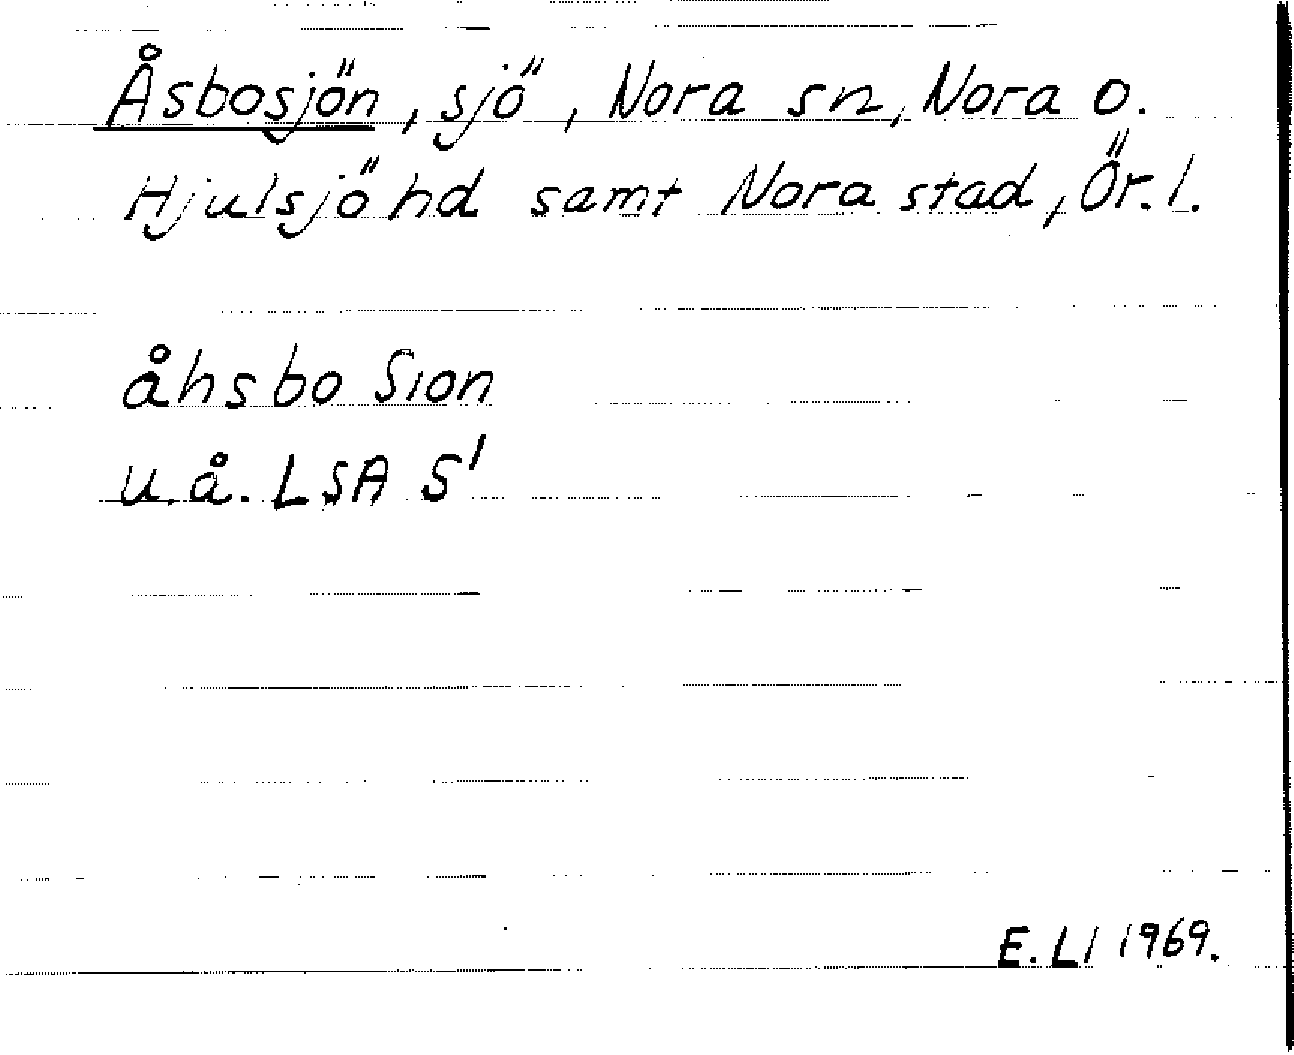 Åsbosjön, sjö, Nora sn, Nora o.
Hjulsjö hd samt Nora stad, Ör. l.
åhsbo Sion
u å. LSA S1
E. Ll 1969.